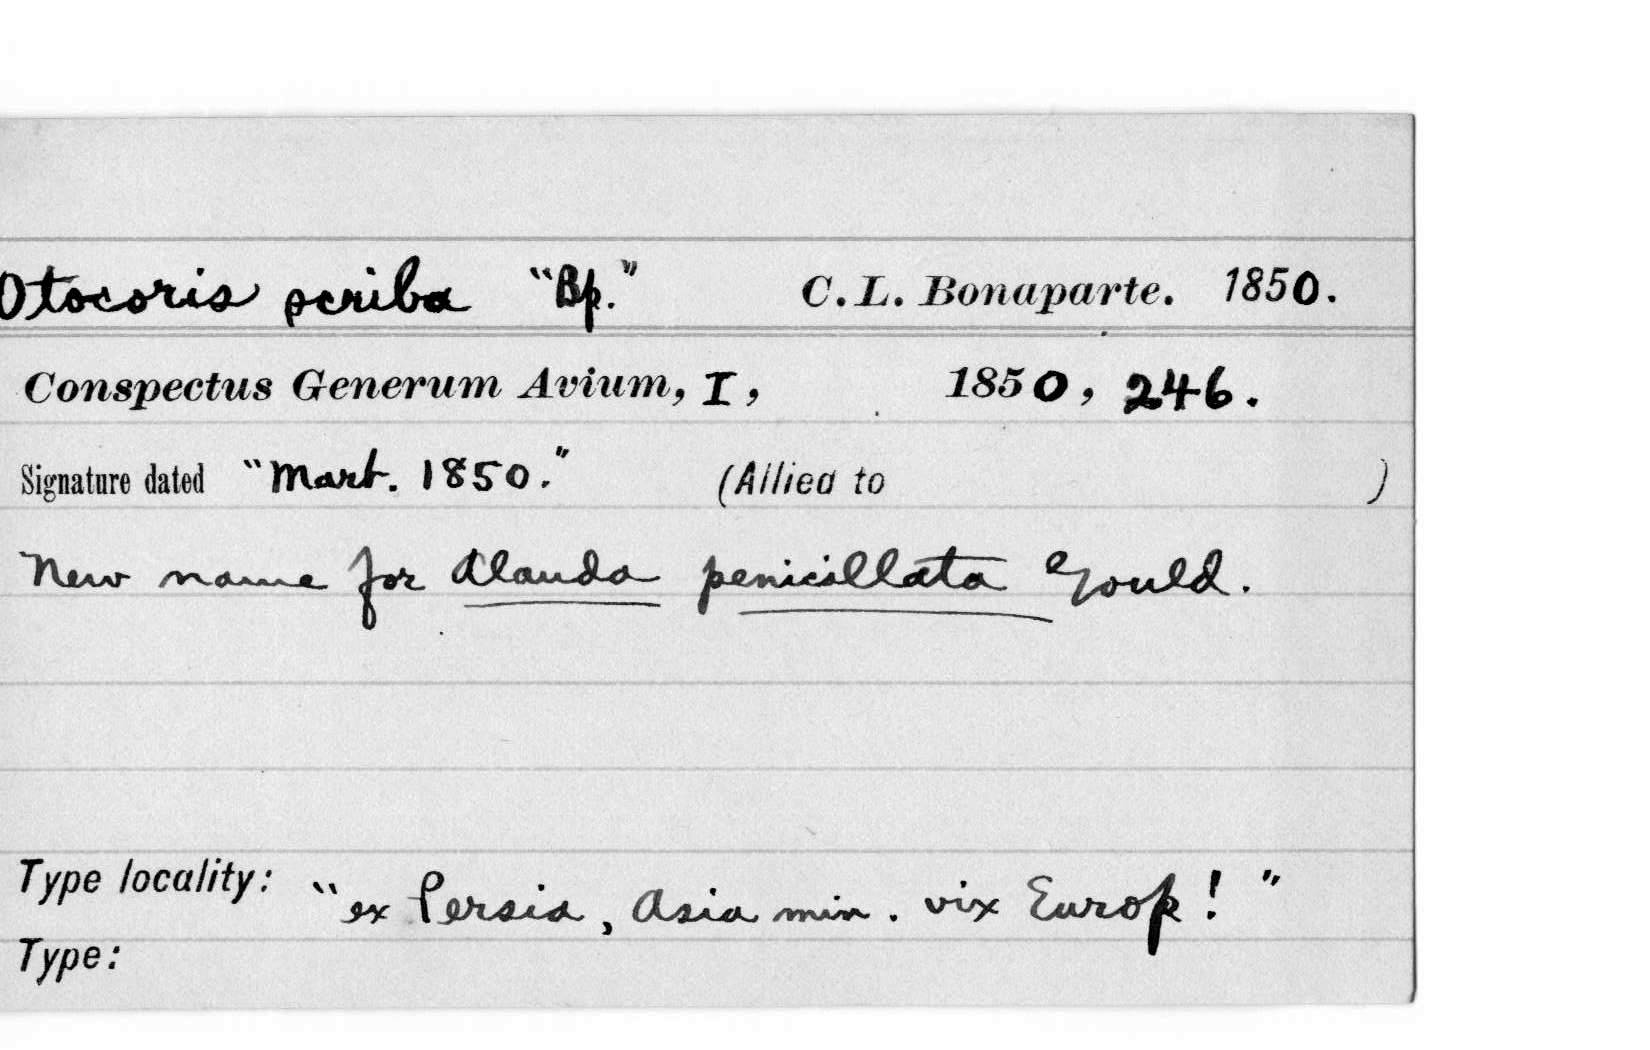 Otocoris scriba "Bp." C. L. Bonaparte. 1850.
Conspectus Generum Avium, I, 1850, 246.
Signature dated "Mart. 1850." (Allied to )
New name for Alauda penicillata Gould.
Type locality: "ex Persia, Asia min. vix Europ! "
Type: